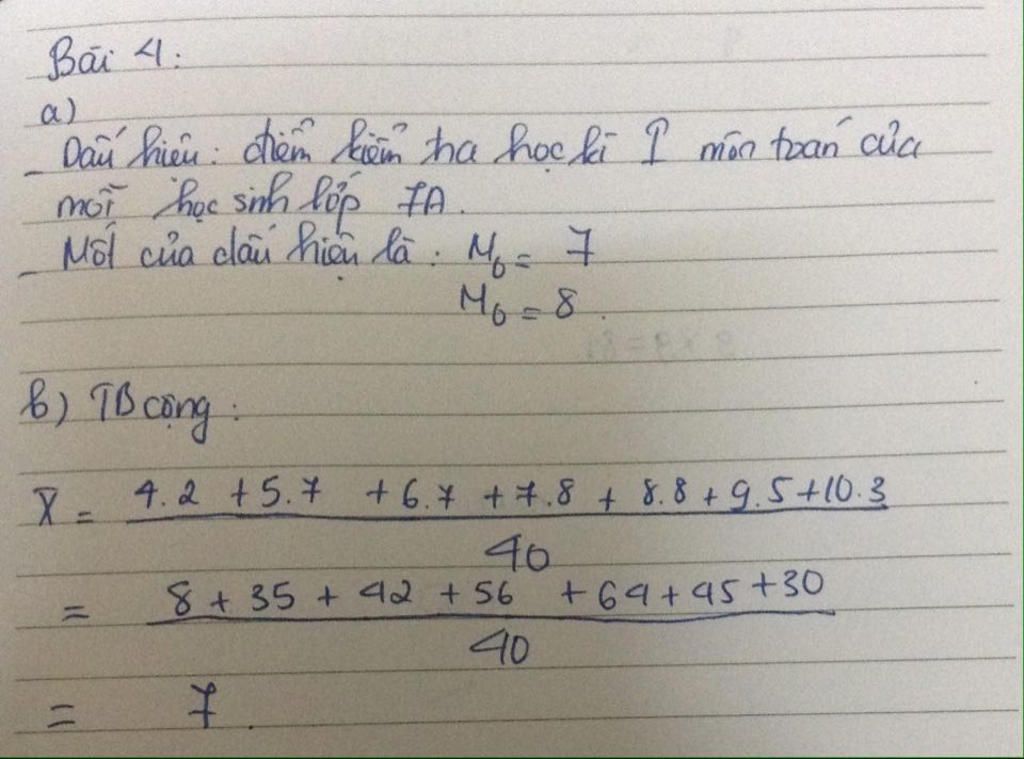 Bài 4:
a)
- Dấu hiệu: điểm kiểm tra học kì I môn toán của
mỗi học sinh lớp 7A.
- Mốt của dấu hiệu là: M₀ = 7
M₀ = 8.
b) TB cộng:
X̄ = 4.2 + 5.7 + 6.7 + 7.8 + 8.8 + 9.5 + 10.3
40
= 8 + 35 + 42 + 56 + 64 + 45 + 30
40
= 7.